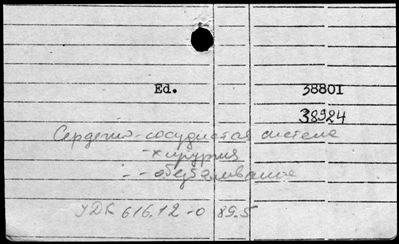 Ed. 38801
38924
Сердечно-сосудистая система
- хирургия
- - обезболивание
УДК 616.12-089.5